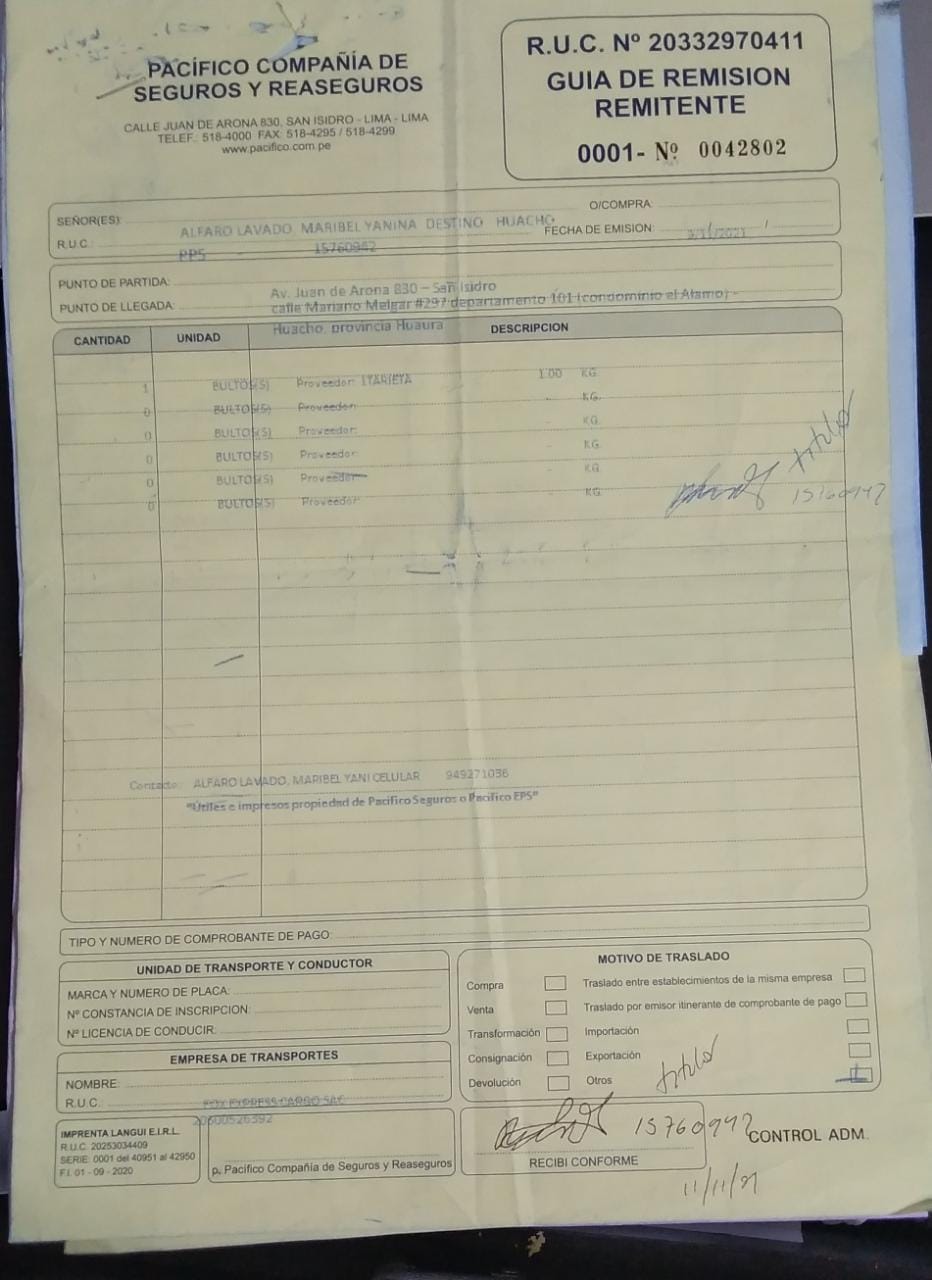 PACÍFICO COMPAÑÍA DE
SEGUROS Y REASEGUROS
CALLE JUAN DE ARONA 830, SAN ISIDRO - LIMA - LIMA
TELEF.: 518-4000 FAX: 518-4295 / 518-4299
www.pacifico.com.pe
R.U.C. Nº 20332970411
GUIA DE REMISION
REMITENTE
0001- Nº 0042802
SEÑOR(ES):
O/COMPRA:
ALFARO LAVADO, MARIBEL YANINA DESTINO HUACHO
R.U.C.:
FECHA DE EMISION:
PPS - 15760942
PUNTO DE PARTIDA:
Av. Juan de Arona 830 – San Isidro
PUNTO DE LLEGADA:
calle Mariano Melgar #297 departamento 101 (condominio el Alamo) -
Huacho, provincia Huaura
CANTIDAD UNIDAD DESCRIPCION
1 BULTOS(S) Proveedor: 1.00 KG.
0 BULTOS(S) Proveedor: - KG.
0 BULTOS(S) Proveedor: - KG.
0 BULTOS(S) Proveedor: - KG.
0 BULTOS(S) Proveedor: - KG.
0 BULTOS(S) Proveedor: - KG.
titular
15760942
Contacto: ALFARO LAVADO, MARIBEL YANI CELULAR 949271036
"Útiles e impresos propiedad de Pacifico Seguros o Pacifico EPS"
TIPO Y NUMERO DE COMPROBANTE DE PAGO:
UNIDAD DE TRANSPORTE Y CONDUCTOR
MARCA Y NUMERO DE PLACA:
Nº CONSTANCIA DE INSCRIPCION:
Nº LICENCIA DE CONDUCIR:
EMPRESA DE TRANSPORTES
NOMBRE:
R.U.C.:
FOX EXPRESS CARGO SAC
20600526392
MOTIVO DE TRASLADO
Compra
Traslado entre establecimientos de la misma empresa
Venta
Traslado por emisor itinerante de comprobante de pago
Transformación
Importación
Consignación
Exportación
Devolución
Otros
titular
IMPRENTA LANGUI E.I.R.L.
R.U.C. 20253034409
SERIE: 0001 del 40951 al 42950
F.I. 01 - 09 - 2020
p. Pacifico Compañía de Seguros y Reaseguros
15760942
RECIBI CONFORME
CONTROL ADM.
11/11/21